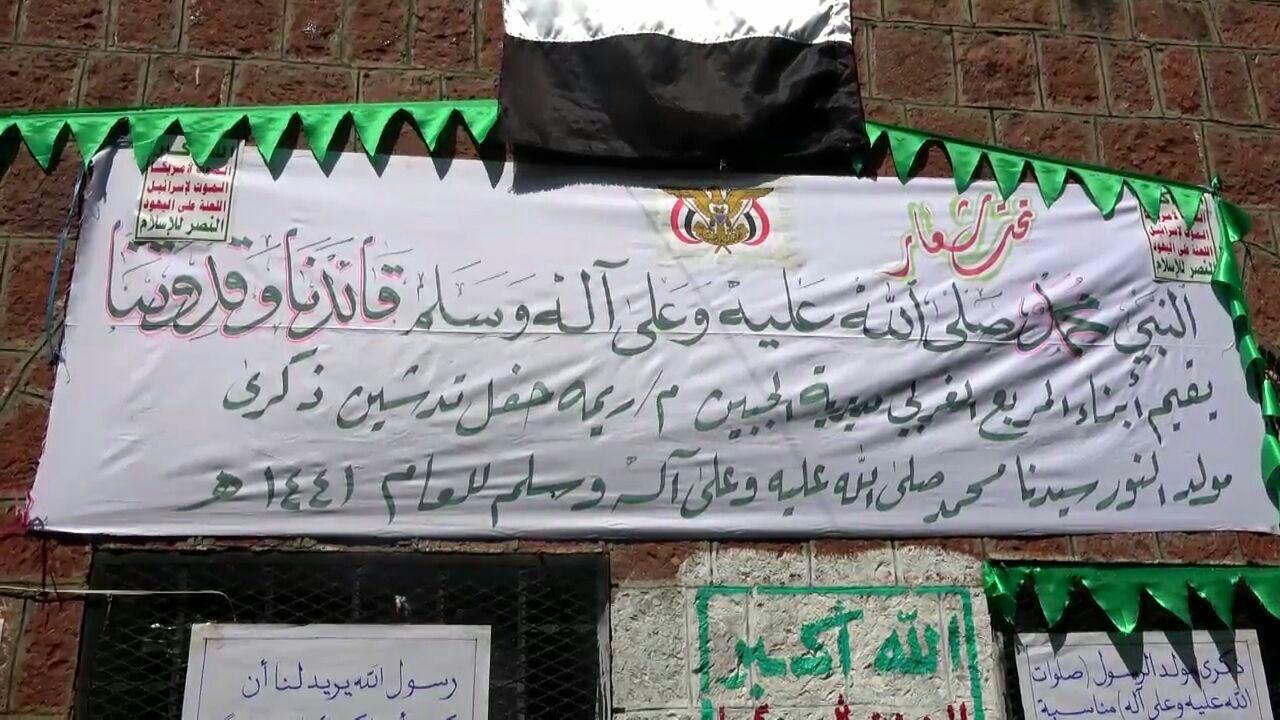 تحت شعار
النبي محمد صلى الله عليه وعلى آله وسلم قائدنا وقدوتنا
يقيم أبناء المربع الغربي مديرية الجبين م/ريمه حفل تدشين ذكرى
مولد النور سيدنا محمد صلى الله عليه وعلى آله وسلم للعام ١٤٤١ هـ
الموت لأمريكا
الموت لإسرائيل
اللعنة على اليهود
النصر للإسلام
الموت لأمريكا
الموت لإسرائيل
اللعنة على اليهود
النصر للإسلام
الله أكبر
ذكرى مولد الرسول (صلوات
الله عليه وعلى آله) مناسبة
رسول الله يريد لنا أن